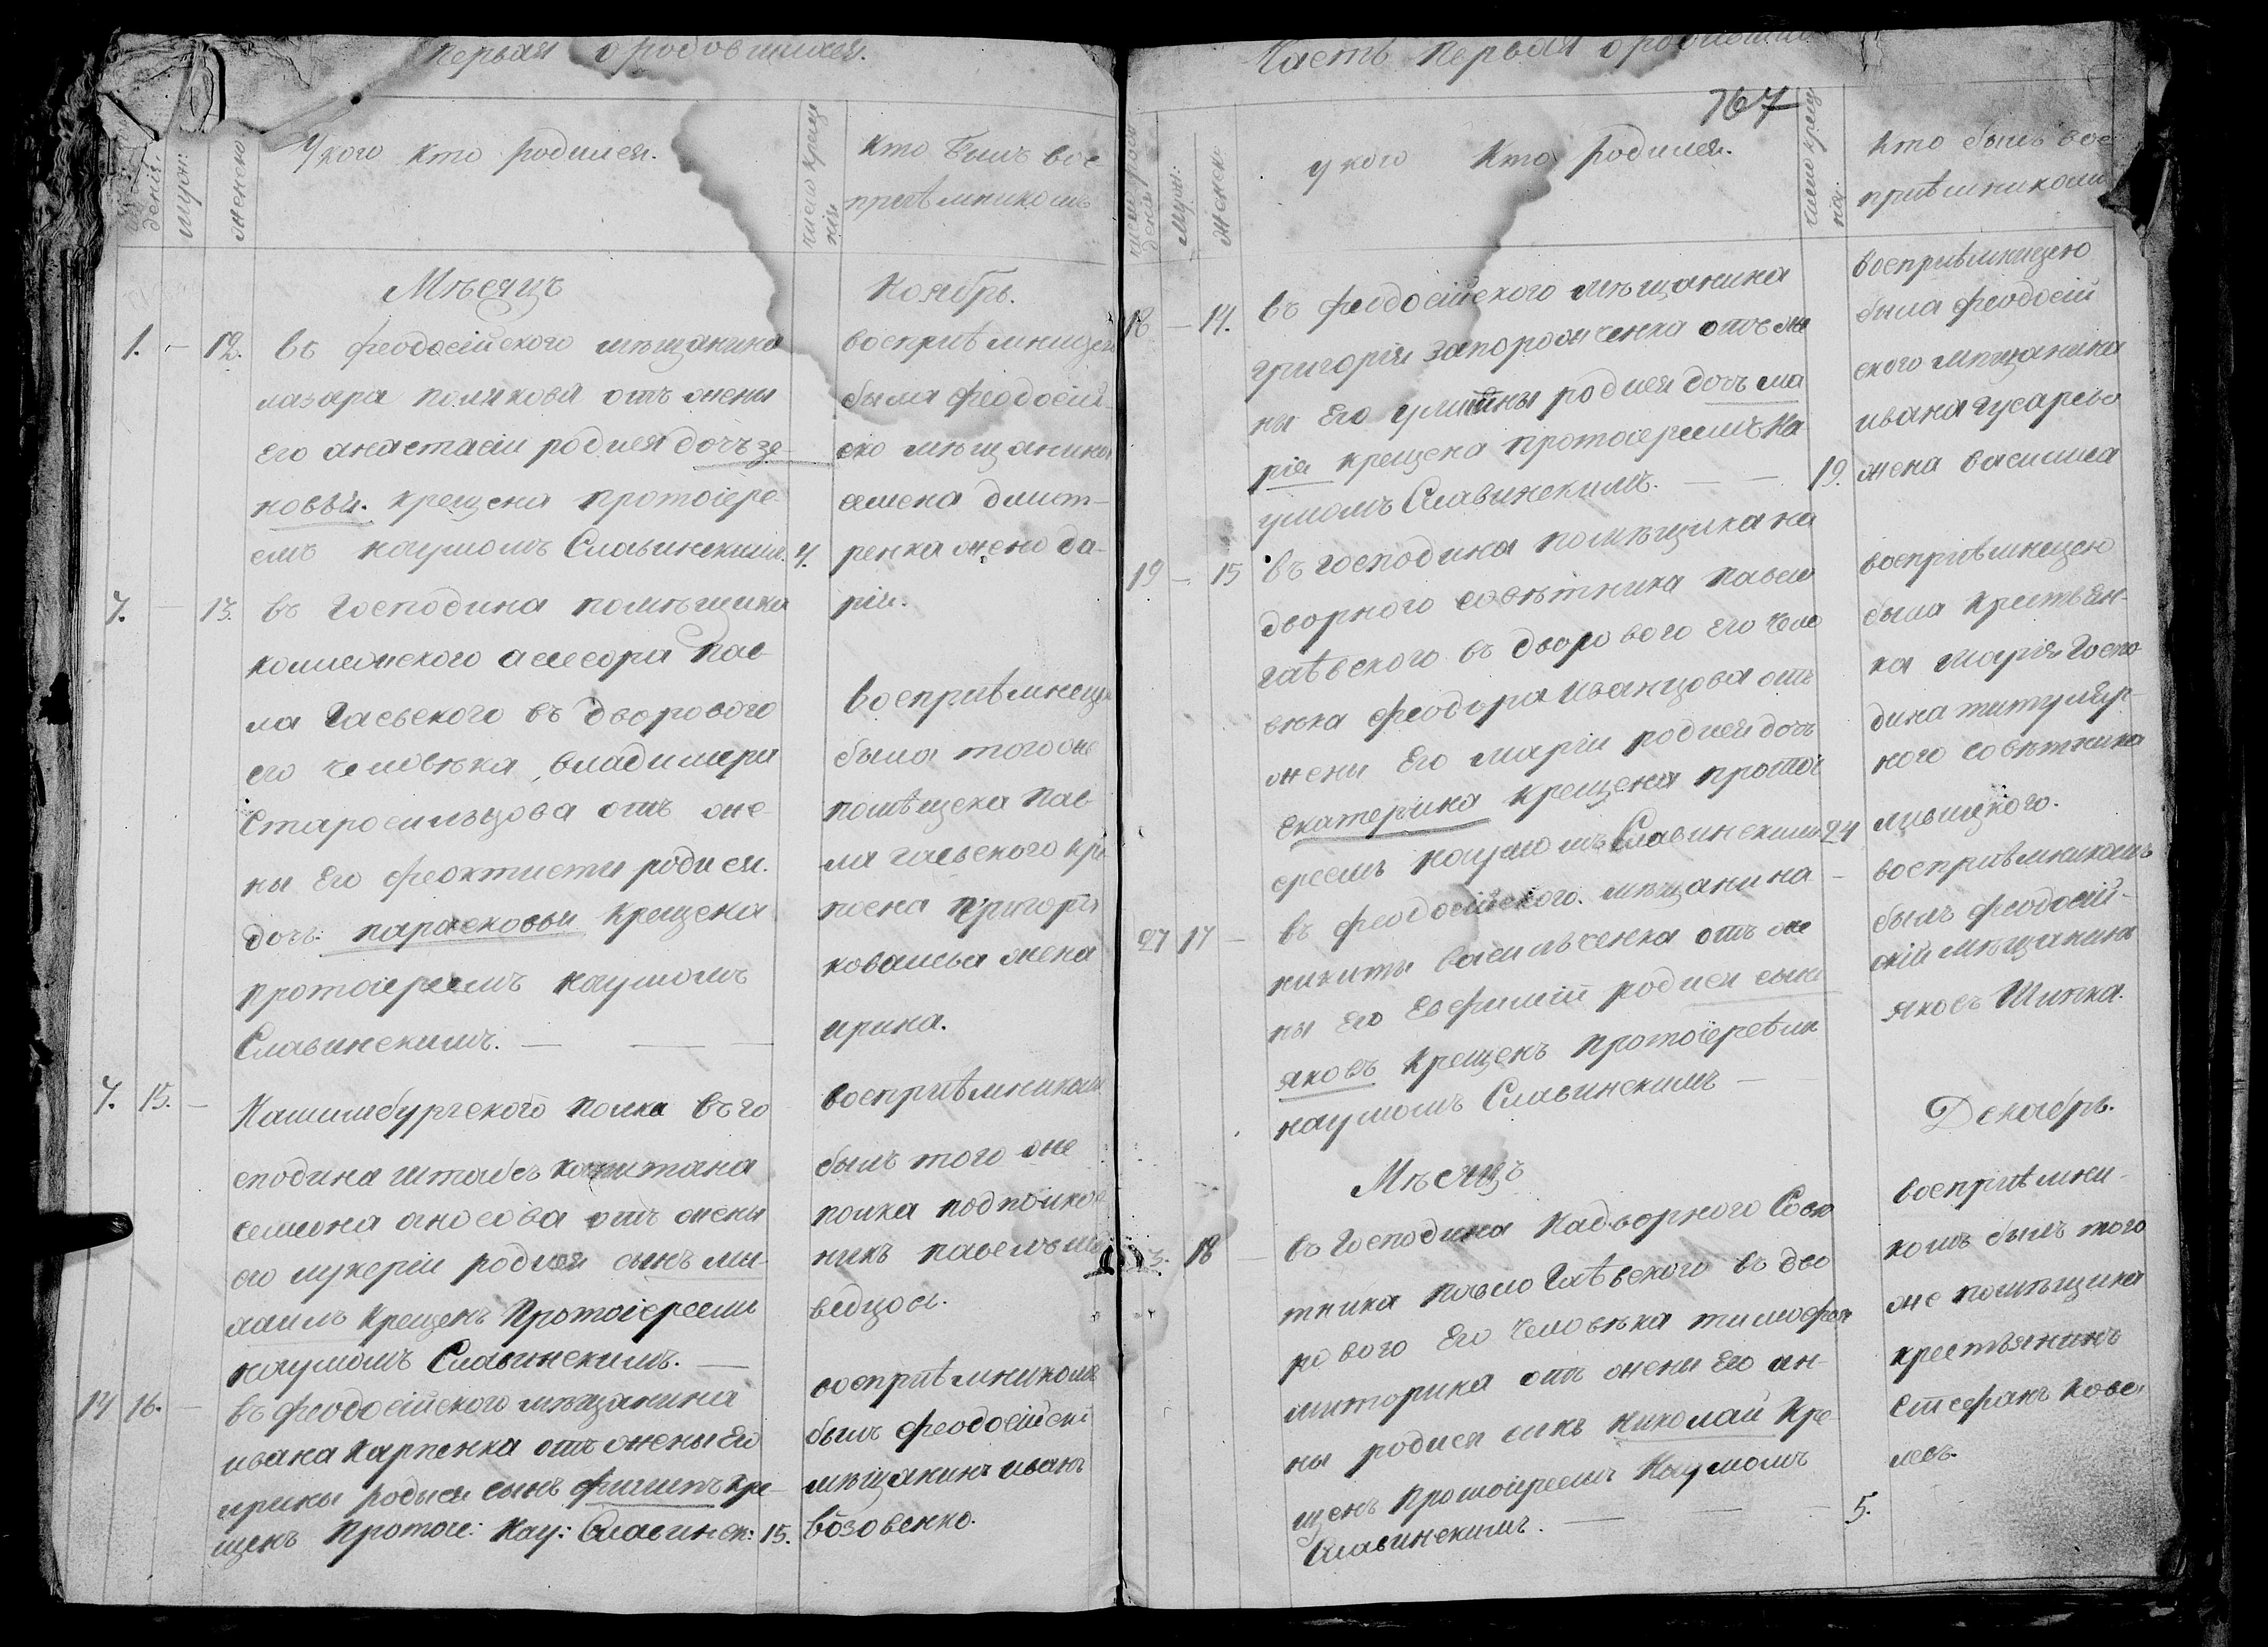 первая о родовшихся.
У кого кто родился.
Кто былъ вос
пріѣмникомъ
дения.
Муж:
женск
число крещ
нія
Мѣсяцъ
Ноябрь.
1. — 12. въ феодосійского мѣщанина
лазара полякова отъ жены
его анастасіи родися дочъ зе-
новья. крещена протоіере
емъ наумомъ Славинскимъ. 4.
воспріѣмницею
была феодосій-
ско мѣщанина
семена дмит-
ренка жена да-
рія.
7. — 13. въ Господина помѣщика
коллежского асессора пав-
ла Гаевского въ дворового
его человѣка владимера
Старосильцова отъ же-
ны Его феоктисты родися.
дочъ: парасковья крещена
протоіереемъ наумомъ
Славинскимъ. — — —
воспріѣмницею
была того же
помѣщека пав-
ла гаевского кре
посна григорія
ковалева жена
ирина.
7. 15. — Капимбургского полка въ го
сподина штабсъ капитана
семена аносова отъ жены
его лукеріи родися сынъ ми-
хаилъ Крещенъ Протоіереемъ
наумомъ Славинскимъ. —
воспріѣмникомъ
былъ того же
полка подполков
никъ павелъ ме
ведцовъ.
14 16. — въ феодосійского мѣщанина
ивана Карпенка отъ жены Его
ирины родися сынъ филипъ кре-
щенъ Протоі: Нау: Славинск: 15.
воспріѣмникомъ
былъ феодосійскі
мѣщанинъ иванъ
возовенко.
Часть первая о родившихся
767
число рож
дения
Муж:
Женск:
у кого Кто родился.
число крещ
нія.
Кто былъ вос
пріѣмникомъ
18 — 14. въ феодосійского мѣщанина
григорія запорожченка отъ же
ны Его улиты родися дочъ ма
рія крещена протоіереемъ на
умомъ Славинскимъ. — — 19.
воспріѣмницею
была феодосій
ского мѣщанина
ивана гусарево
жена василиса
19 — 15 въ господина помѣщика на
дворного совѣтника павла
гаѣвского въ дворового его чело
вѣка феодора иванцова отъ
жены Его маріи родися дочъ
екатерина крещена протоі
ереемъ наумомъ Славинскимъ 24
воспріѣмницею
была крестьян-
ка марія Госпо
дина титуляр-
ного совѣтника
27 17 — въ феодосійского. мѣщанина
никиты васильченка отъ же
ны Его Евфимій родися сынъ
яковъ крещенъ протоіереѣмъ
наумомъ Славинскимъ —
воспріѣмникомъ
былъ феодосій-
скій мѣщанинъ
яковъ Шипка.
Мѣсяцъ
Декабрь.
3. 18 — въ Господина Надворного Совѣ
тника павло Гаѣвского въ дво
рового Его человѣка тимофея
миторика отъ жены Его ан-
ны родися синъ николай кре-
щенъ Протоіереемъ Наумомъ
Славинскимъ. — — — 5.
воспріѣмни-
комъ былъ того
же помѣщика
крестьянинъ
Стефанъ кова
левъ.